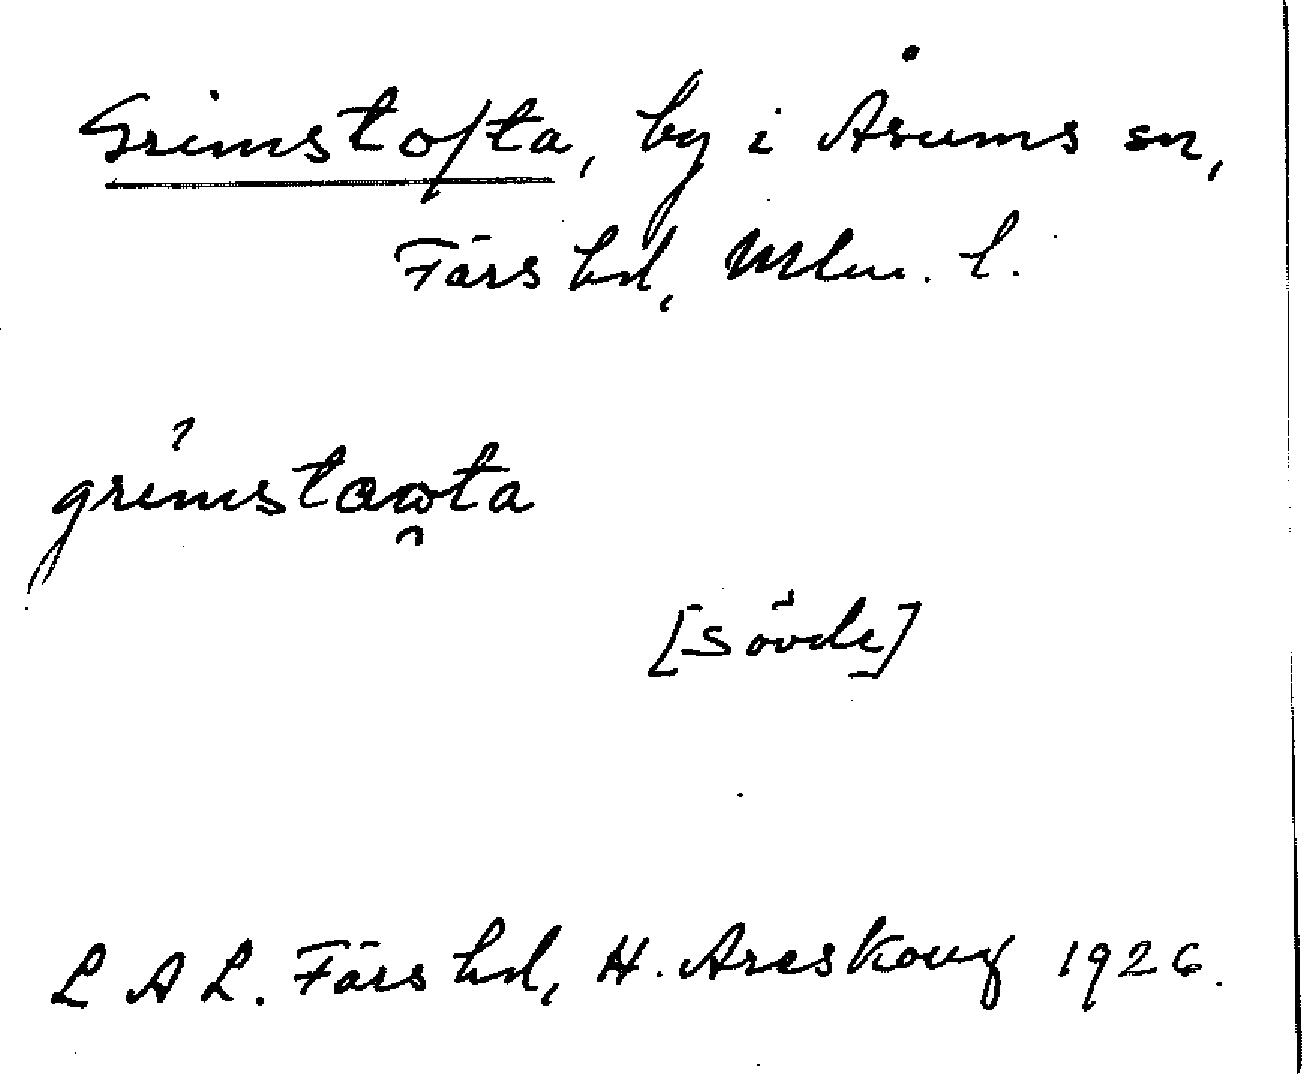 Grimstofta, by i Åsums sn,
Färs hd, Mlm. l.
grimstaωta
[Sövde]
L A L. Färs hd, H. Areskoug 1926.